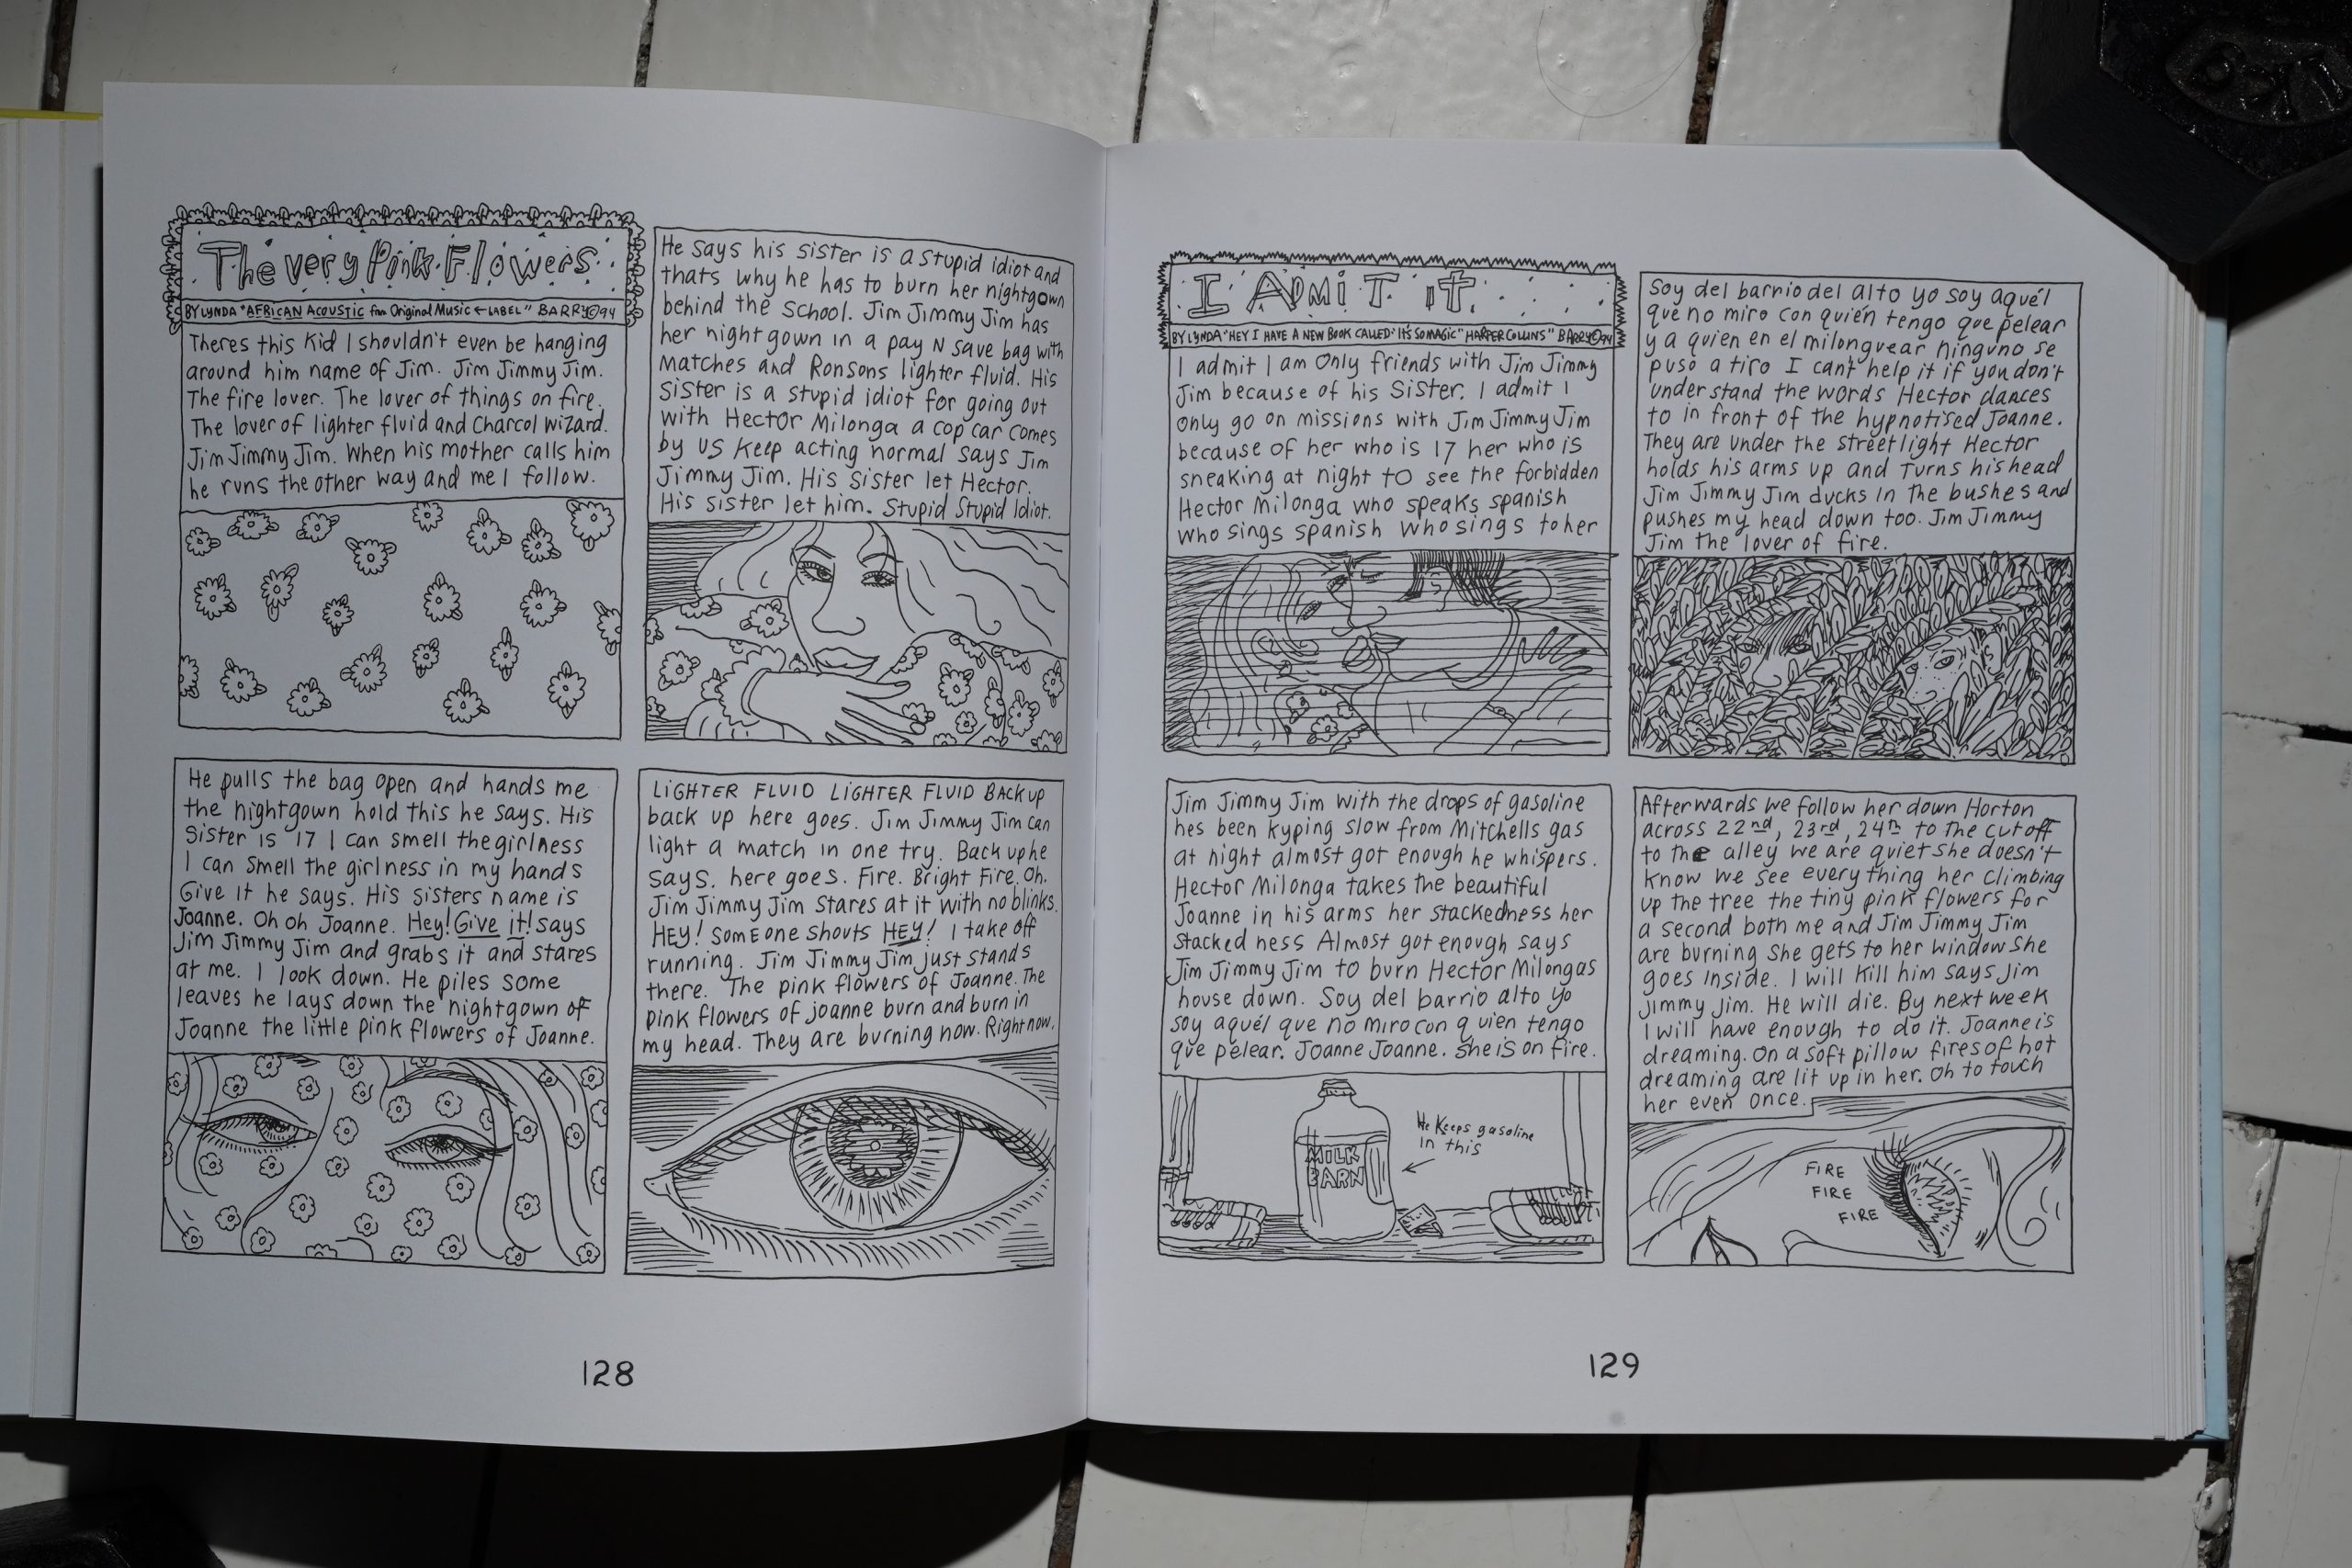 The very Pink Flowers
BY LYNDA "AFRICAN ACOUSTIC from Original Music ← LABEL" BARRY © 94
Theres this kid I shouldn't even be hanging
around him name of Jim. Jim Jimmy Jim.
The fire lover. The lover of things on fire.
The lover of lighter fluid and Charcol Wizard.
Jim Jimmy Jim. When his mother calls him
he runs the other way and me I follow.
He says his sister is a stupid idiot and
thats why he has to burn her nightgown
behind the school. Jim Jimmy Jim has
her nightgown in a pay N save bag with
matches and Ronsons lighter fluid. His
sister is a stupid idiot for going out
with Hector Milonga a cop car comes
by us keep acting normal says Jim
Jimmy Jim. His sister let Hector.
His sister let him. Stupid Stupid Idiot.
He pulls the bag open and hands me
the nightgown hold this he says. His
Sister is 17 I can smell the girlness
I can smell the girlness in my hands
Give it he says. His sisters name is
Joanne. Oh oh Joanne. Hey! Give it! says
Jim Jimmy Jim and grabs it and stares
at me. I look down. He piles some
leaves he lays down the nightgown of
Joanne the little pink flowers of Joanne.
LIGHTER FLUID LIGHTER FLUID BACK UP
back up here goes. Jim Jimmy Jim can
light a match in one try. Back up he
says. here goes. Fire. Bright Fire. Oh.
Jim Jimmy Jim stares at it with no blinks.
HEY! Someone shouts HEY! I take off
running. Jim Jimmy Jim just stands
there. The pink flowers of Joanne. The
pink flowers of joanne burn and burn in
my head. They are burning now. Right now.
128
I ADMIT IT
BY LYNDA "HEY I HAVE A NEW BOOK CALLED 'It's SO MAGIC' HARPER COLLINS" BARRY © 94
I admit I am only friends with Jim Jimmy
Jim because of his Sister. I admit I
only go on missions with Jim Jimmy Jim
because of her who is 17 her who is
sneaking at night to see the forbidden
Hector Milonga who speaks spanish
who sings spanish who sings to her
Soy del barrio del alto yo soy aquél
que no miro con quién tengo que pelear
y a quien en el milonguear ninguno se
puso a tiro I can't help it if you don't
understand the words Hector dances
to in front of the hypnotised Joanne.
They are under the streetlight Hector
holds his arms up and turns his head
Jim Jimmy Jim ducks in the bushes and
pushes my head down too. Jim Jimmy
Jim the lover of fire.
Jim Jimmy Jim with the drops of gasoline
hes been kyping slow from Mitchells gas
at night almost got enough he whispers.
Hector Milonga takes the beautiful
Joanne in his arms her stackedness her
stackedness Almost got enough says
Jim Jimmy Jim to burn Hector Milongas
house down. Soy del barrio alto yo
soy aquél que no miro con quien tengo
que pelear. Joanne Joanne. She is on fire.
He keeps gasoline
in this
MILK
BARN
Afterwards we follow her down Horton
across 22nd, 23rd, 24th to the cutoff
to the alley we are quiet she doesn't
know we see everything her climbing
up the tree the tiny pink flowers for
a second both me and Jim Jimmy Jim
are burning she gets to her window she
goes inside. I will kill him says Jim
Jimmy Jim. He will die. By next week
I will have enough to do it. Joanne is
dreaming. On a soft pillow fires of hot
dreaming are lit up in her. Oh to touch
her even once.
FIRE
FIRE
FIRE
129